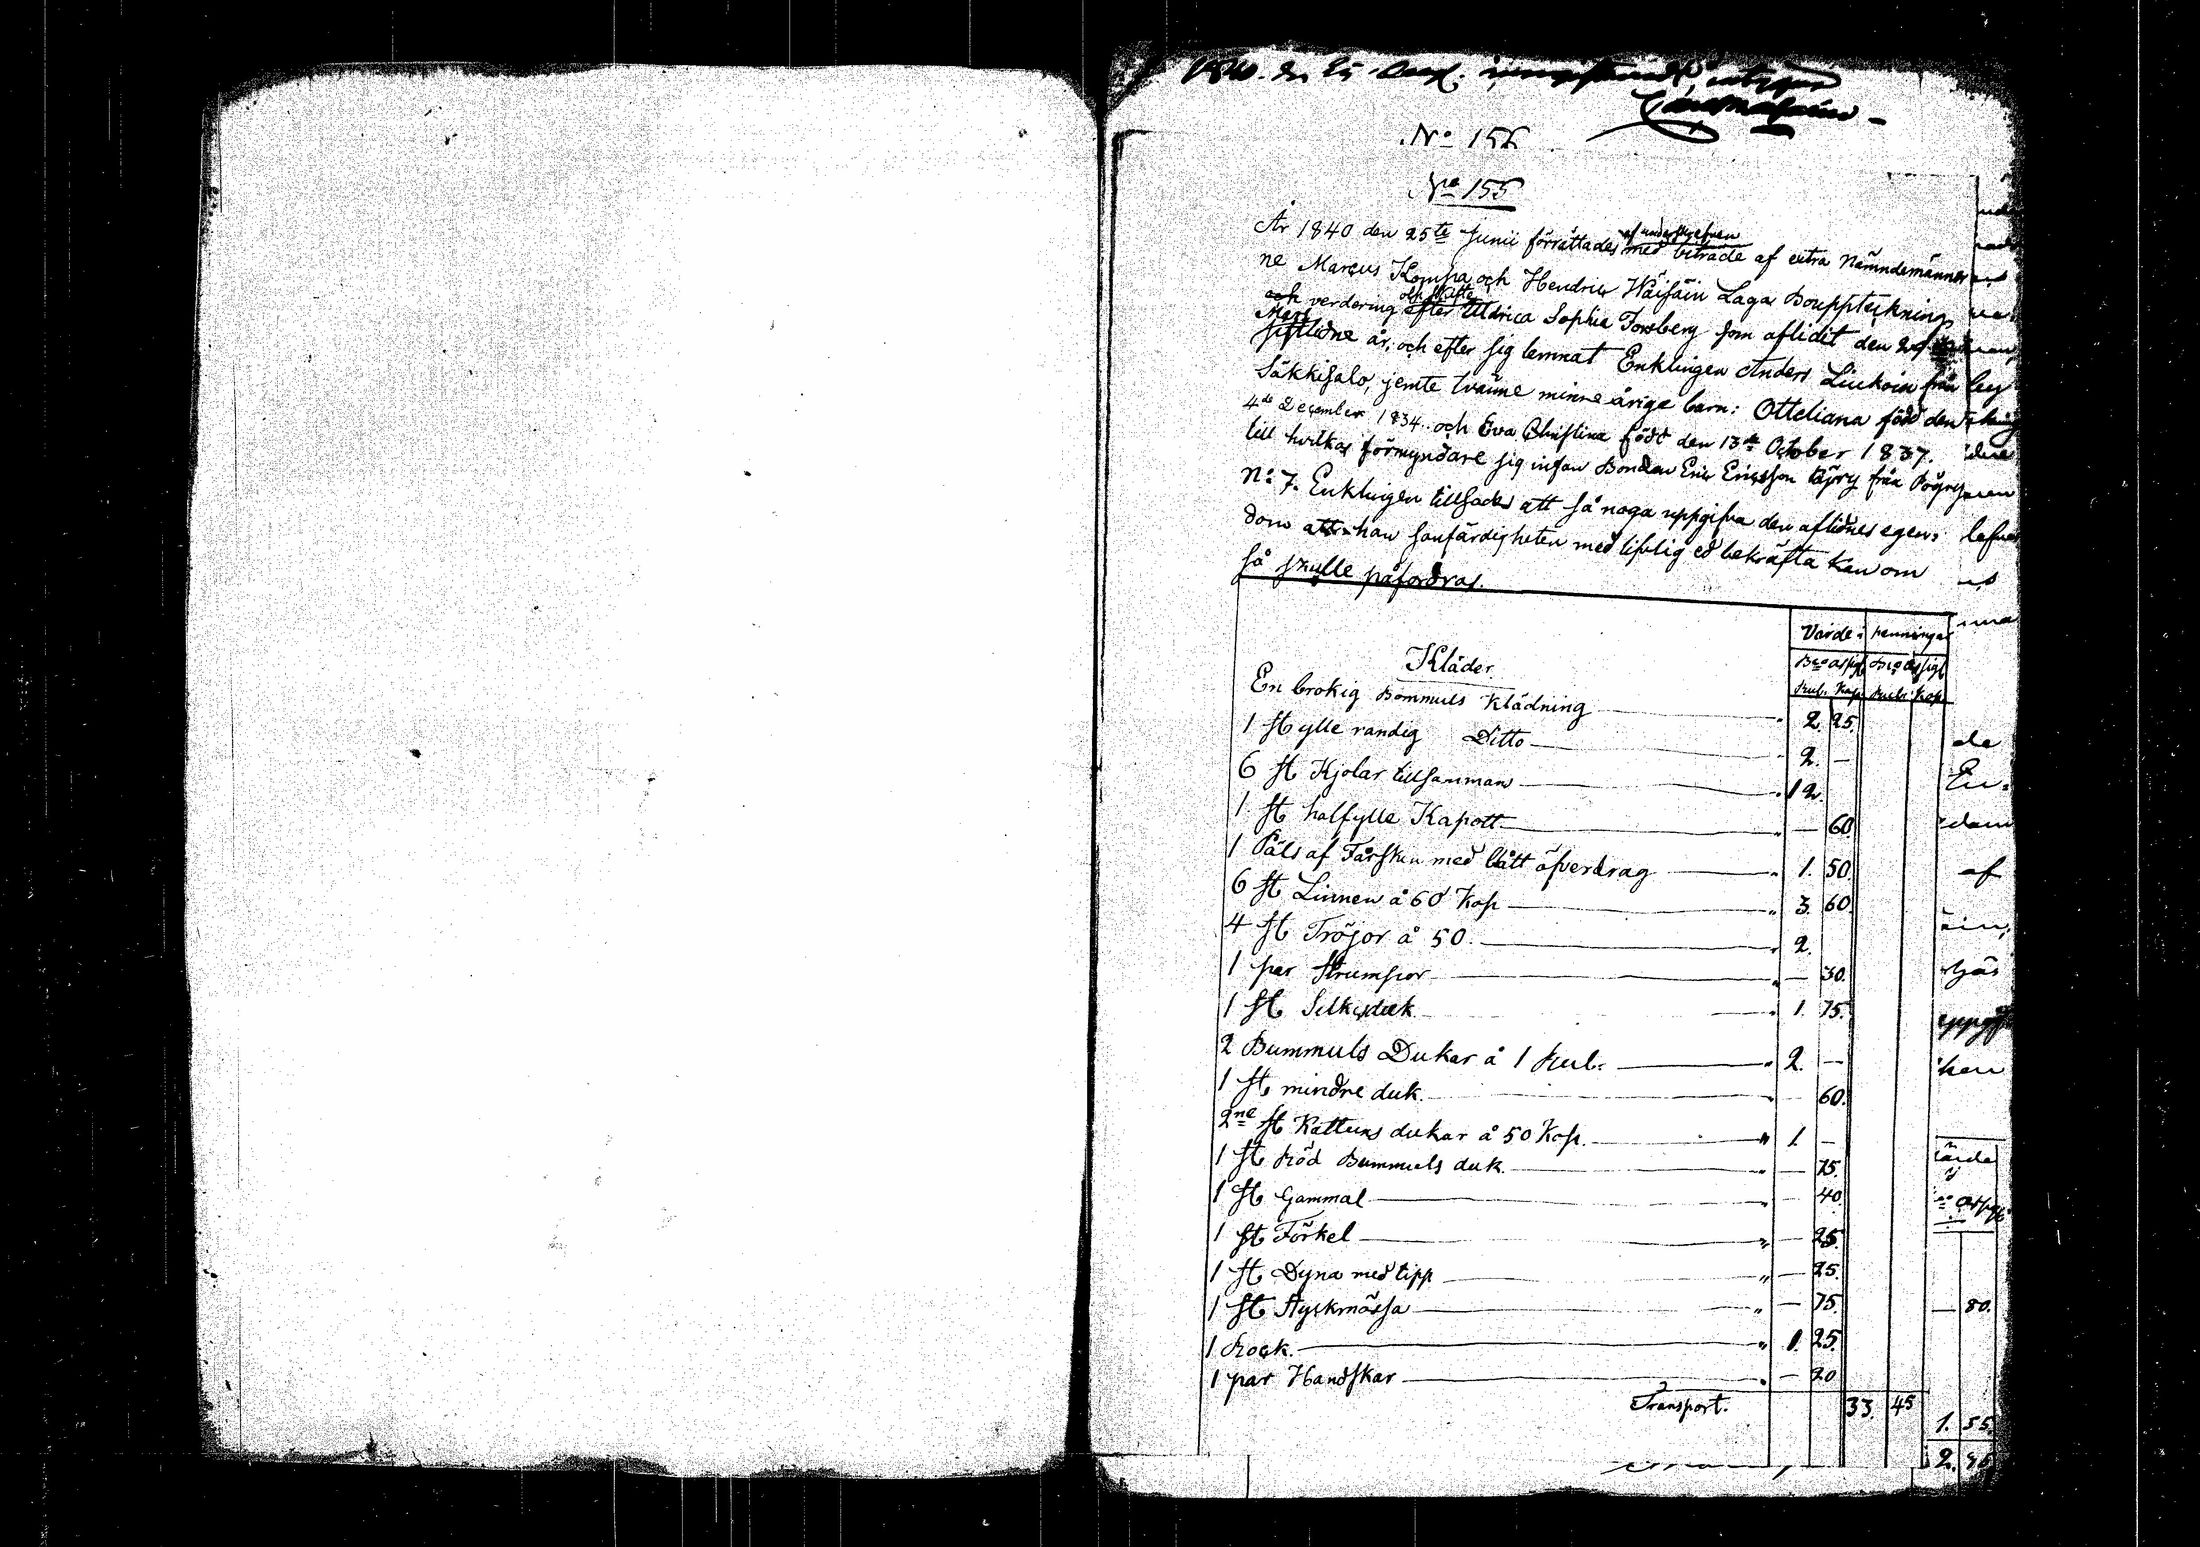 1840. den 25
No 156
No 155
År 1840 den 25te Junii förrättades af underskrefnen med biträde af extra Nämndemänner
ne Marcus Kompa och Hendric Wäisäin Laga Bouppteckning
och verdering efter Uldrica Sophia Forsberg som aflidit den
sistlidne år, och efter sig lemnat Enklingen Anders Liukoin från
Säkkisalo, jemte tvänne minne årige barn: Otteliana född den
4de December 1834. och Eva Christina född den 13de October 1837.
till hvilkas förmyndare sig infan Bonden Eric Ericsson från
No 7. Enklingen tillsades att så noga uppgifva den aflidnes egen:
dom att han sanfärdigheten med liflig ed bekräfta kan om
så skulle påfordras.
Värde i penningar
Bco assigt Bco assigt
Rub. Kop. Rub. Kop.
Kläder.
En brokig Bommuls Klädning 2. 25.
1 st ylle randig Ditto 2. —
6 st Kjolar tillsamman 12.
1 st halfylle Kapott — 60.
1 Päls af Fårskin med blått öfverdrag 1. 50.
6 st Linnen å 60 Kop 3. 60.
4 st Tröjor å 50. 2.
1 par Strumpor — 30.
1 st Silkesduk 1. 75.
2 Bummuls Dukar å 1 Rub. 2. —
1 st mindre duk. — 60.
2ne st Kattuns dukar å 50 Kop. 1. —
1 st Röd Bummuls duk. — 75.
1 st Gammal — 40.
1 st Förkel — 25.
1 st Dyna med tipp — 25.
1 st Styckmössa — 75.
1 Rock. 1. 25.
1 par Handskar — 20
Transport. 33. 45